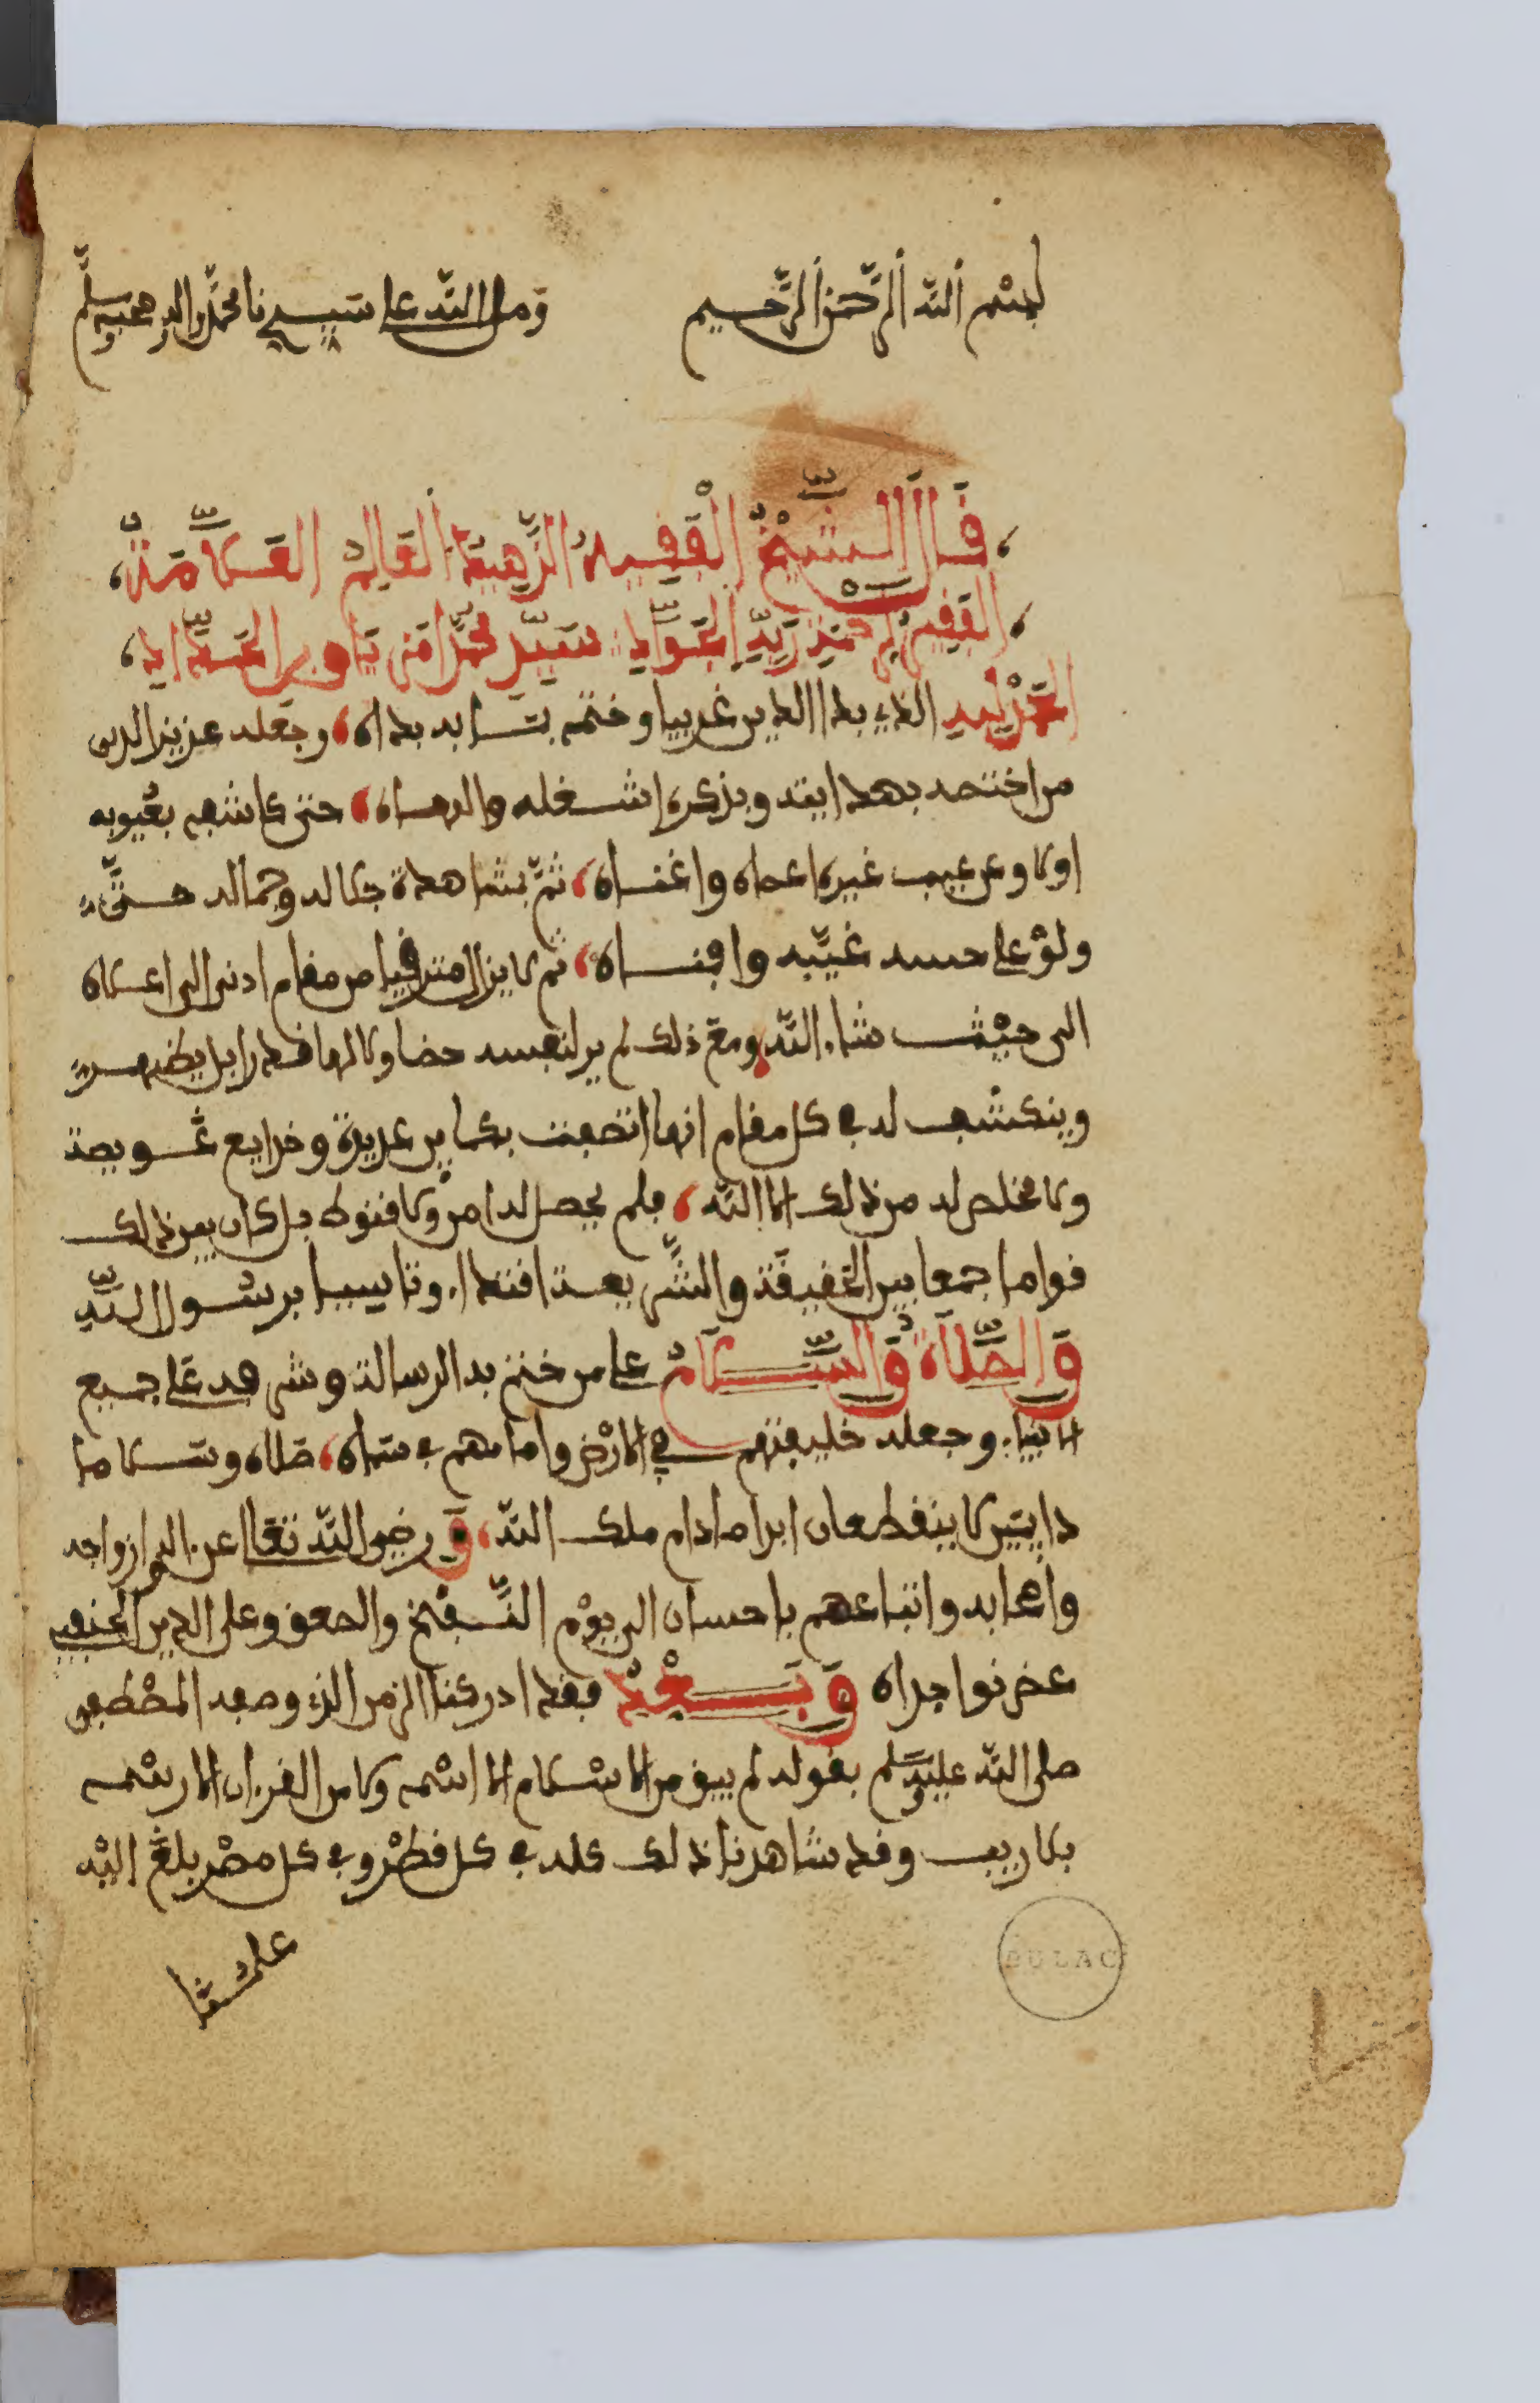 بسم الله الرحمن الرحيم وصلى الله على سيدنا محمد واله وصحبه وسلم
قال الشيخ الفقيه النزيه العالم العلامة
الفقير لرحمة ربه الجواد سيد محمد
الحمد لله الذي بدا الدين غريبا وختمه بتشابه بداه وجعله عزيزا
من اختصه بهدايته وبذكره اشغله والهاه حتى كاشفه بعيوبه
اولا وعن عيب غيره اعماه واغفاه ثم بمشاهدة جلاله وجماله حتى
ولو على حسه غيبه وافناه ثم لا يزال مترقيا من مقام ادنى الى اعلاه
الى حيث شاء الله ومع ذلك لم ير لنفسه حضا ولا لها قدرا بل يظهر
وينكشف له في كل مقام انها اتصفت بكباير عديدة وخدايع عويصة
ولا مخلص له من ذلك الا الله فلم يحصل له امن ولا قنوط بل كان بين ذلك
قواما جمعا بين الحقيقة والشريعة اقتداء وتاسيا برسول الله
والصلاة والسلام على من ختم به الرسالة وشرفه على جميع
الانبياء وجعله خليفتهم في الارض وامامهم في سماه صلاه وسلاما
دايمين لا ينقطعان ابدا ما دام ملك الله ورضي الله تعالى عن اله وازواجه
واصحابه واتباعهم باحسان الى يوم النفخ والصعق وعلى الدين الحنيفي
عض نواجداه وبعد فقد ادركنا الزمن الذي وصفه المصطفى
صلى الله عليه وسلم بقوله لم يبق من الاسلام الا اسمه ولا من القرءان الا رسمه
بلا ريب وقد شاهدنا ذلك كله في كل قطر وفي كل مصر بلغ اليه
علمنا
BULAC